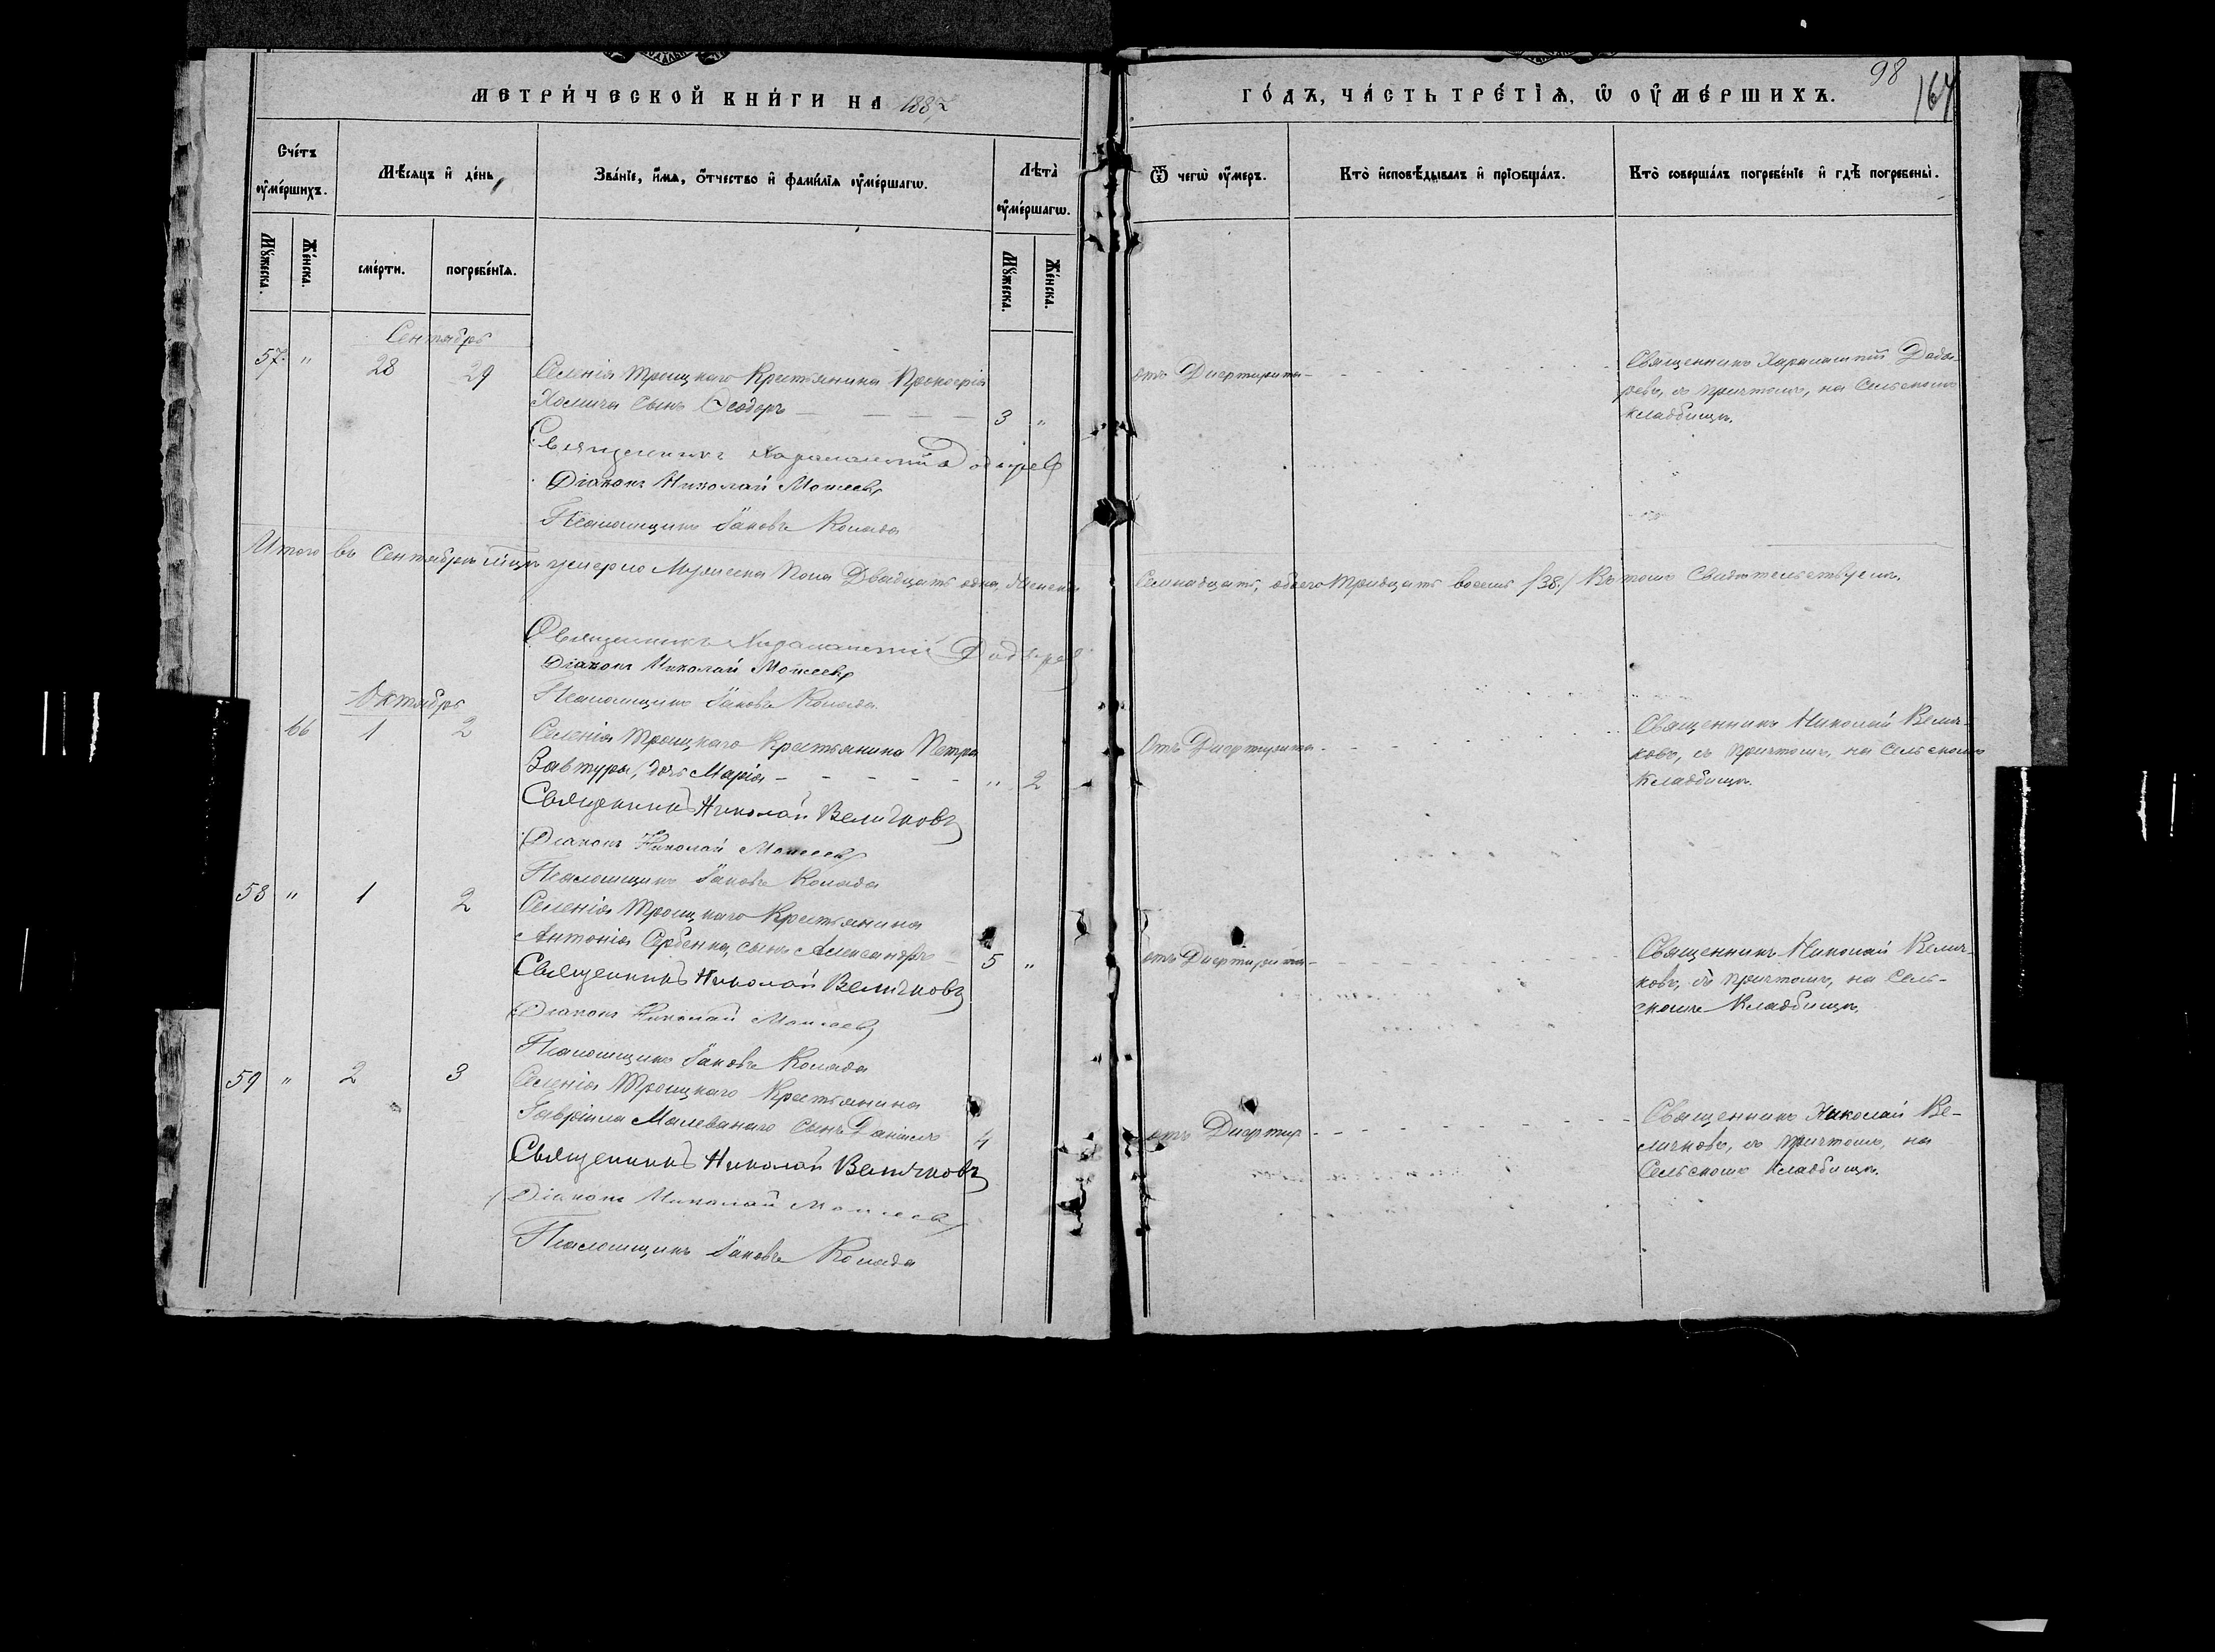 МЕТРИ́ЧЕСКОЙ КНИ́ГИ НА 1887
ГО́ДЪ, ЧА́СТЬ ТРЕ́ТІѦ, Ѡ ОУ҆МЕ́РШИХЪ.
98
164
Сче́тъ оу҆ме́ршихъ.
Мѣ́сяцъ и҆ де́нь
Зва́нїе, и҆́мѧ, ѻ҆́тчество и҆ фами́лїѧ оу҆ме́ршагѡ.
Лѣ́та оу҆ме́ршагѡ.
Ѿ чегѡ̀ оу҆́меръ.
Кто̀ и҆сповѣ́дывалъ и҆ прїобща́лъ.
Кто̀ соверша́лъ погребе́нїе и҆ гдѣ̀ погребены̀.
Мꙋ́жеска.
Же́нска.
сме́рти.
погребе́нїѧ.
Мꙋ́жеска.
Же́нска.
Сентябрь
57. " 28 29 Селенія Троицкаго Крестьянина Прокофія
Хомича Сынъ Ѳеодоръ — — — — 3 "
отъ Дифтирита —
Священникъ Харалампій Доды-
ревъ, съ причтомъ, на Сельскомъ
кладбищѣ.
Священникъ Харалампій Додыревъ
Діаконъ Николай Моисеевъ
Псаломщикъ Іаковъ Колада
Итого въ Сентябрѣ м-цѣ умерло Мужеска Пола Двадцать одна, Женска
Семнадцать, обоего тридцать восемь /38/ Въ томъ Свидѣтельствуемъ.
Священникъ Харалампій Додыревъ
Діаконъ Николай Моисеевъ
Псаломщикъ Іаковъ Колада
Октябрь
66 1 2 Селенія Троицкаго Крестьянина Петра
Завтуры, дочь Марія — — — — — " 2
Отъ Дифтирита
Священникъ Николай Велич-
ковъ, съ причтомъ, на Сельскомъ
Кладбищѣ.
Священникъ Николай Величковъ
Діаконъ Николай Моисеевъ
Псаломщикъ Іаковъ Колада
58 " 1 2 Селенія Троицкаго Крестьянина
Антонія Сербенка, сынъ Александръ — 5 "
отъ Дифтирита —
Священникъ Николай Велич-
ковъ, съ причтомъ, на Сель-
скомъ Кладбищѣ.
Священникъ Николай Величковъ
Діаконъ Николай Моисеевъ
Псаломщикъ Іаковъ Колада
59 " 2 3 Селенія Троицкаго Крестьянина
Гавріила Малеванаго Сынъ Даніилъ 4
отъ Дифтир
Священникъ Николай Ве-
личковъ, съ причтомъ, на
Сельскомъ Кладбищѣ.
Священникъ Николай Величковъ
Діаконъ Николай Моисеевъ
Псаломщикъ Іаковъ Колада